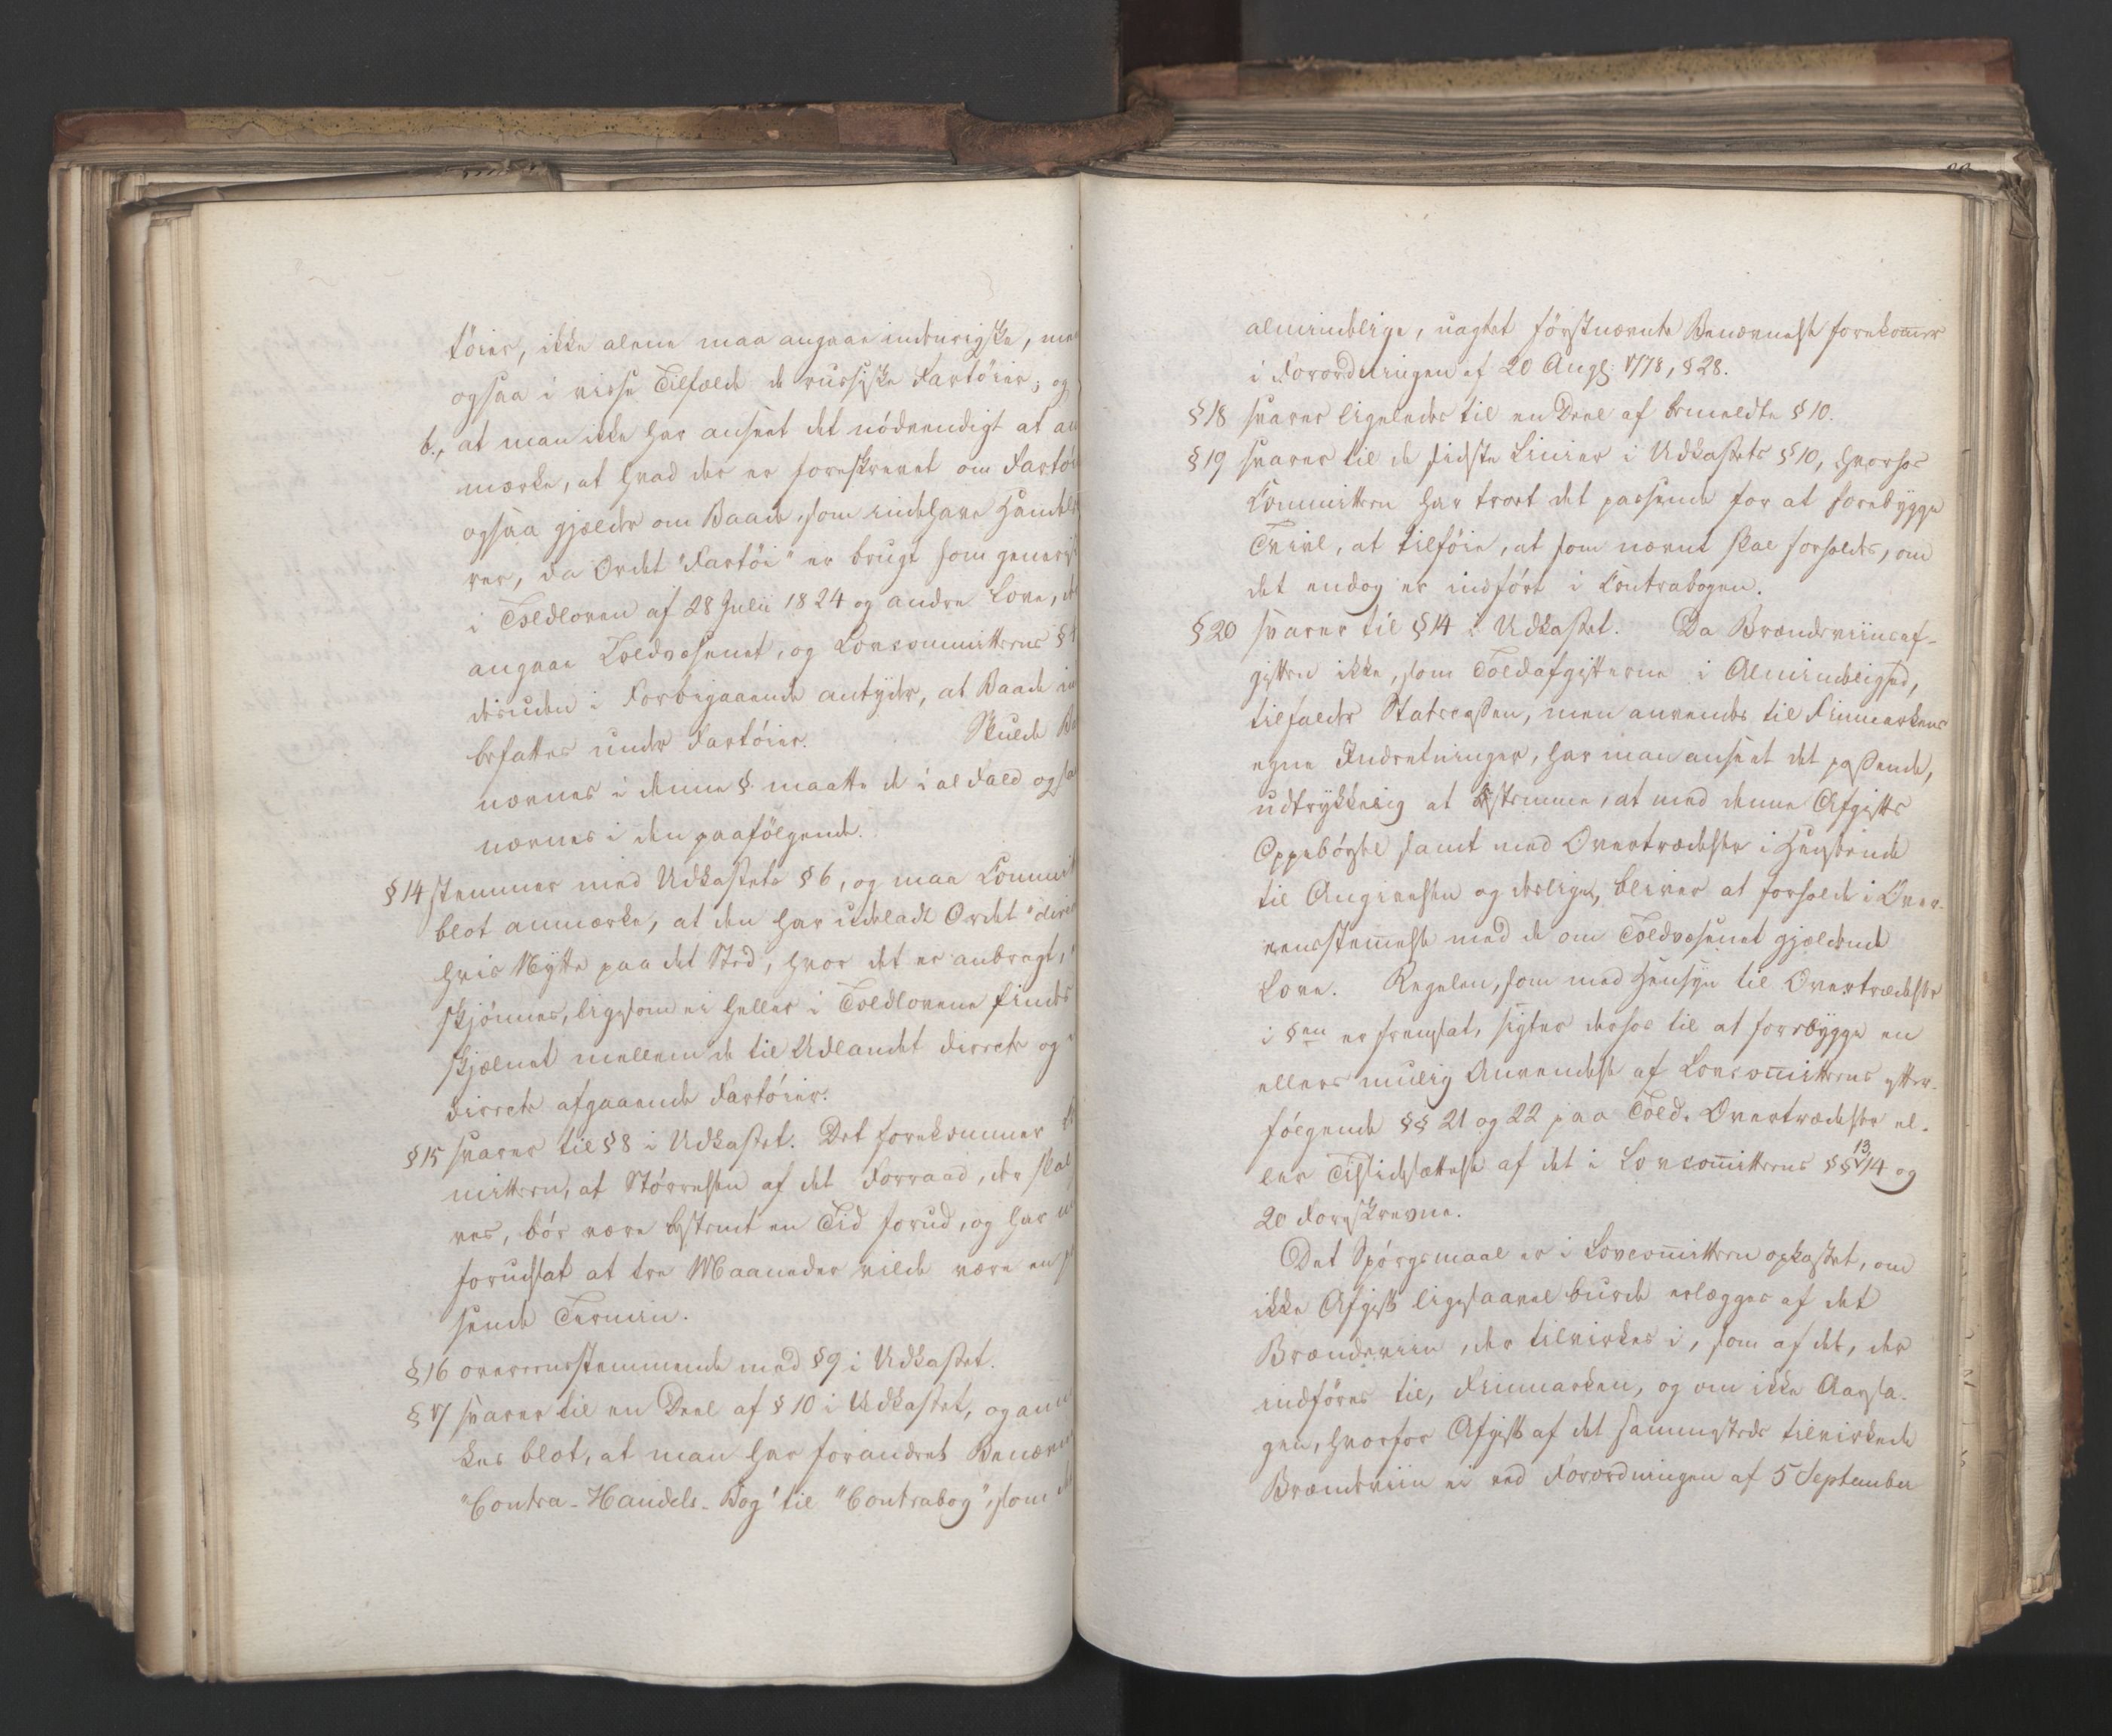 töier, ikke alene maa angaae indenrigske, men
ogsaa i visse Tilfælde de russiske Fartöier; og
b., at man ikke har anseet det nödvendigt at an
mærke, at hvad der er foreskrevet om Fartöi
ogsaa gjælder om Baade, som indehave Handels
rer, da Ordet "Fartöi" er brugt som generisk
i Toldloven af 28 Julii 1824 og andre Love,
angaae Toldvæsenet, og Lovcommitteens §
desuden i Forbigaaende antyder, at Baade
befattes under Fartöier. Skulde Ba
nævnes i denne §. maatte de i al Fald ogsaa
nævnes i den paafölgende.
§14 stemmer med Udkastets §6, og maa Committ
blot anmærke, at den har udeladt Ordet "direct
hvis Nytte paa det Sted, hvor det er anbragt,
skjönnes, ligesom ei heller i Toldlovene findes
skjælnet mellem de til Udlandet directe og
directe afgaaende Fartöier.
§15 svarer til §8 i Udkastet. Det forekommer
mitteen, at Störrelsen af det Forraad, der skal
ves, bör være bestemt en Tid forud, og har
forudsat at tre Maaneder vilde være en
sende Termin.
§16 overeensstemmende med §9 i Udkastet.
§17 svarer til en Deel af §10 i Udkastet, og anm
kes blot, at man har forandret Benævn
"Contra-Handels-Bog" til "Contrabog", som
almindelige, uagtet förstnævnte Benævnelse forekommer
i Forordningen af 20 Aug: 1778, §28.
§18 svarer ligeledes til en Deel af bemeldte §10.
§19 svarer til de sidste Linier i Udkastets §10, hvorhos
Committeen har troet det passende for at forebygge
Tvivl, at tilföie, at som nævnt skal forholdes, om
det endog er indfört i Contrabogen.
§20 svarer til §14 i Udkastet. Da Brændeviinsaf-
giften ikke, som Toldafgifterne i Almindelighed,
tilfalder Statscassen, men anvendes til Finmarkens
egne Indretninger, har man anseet det passende,
udtrykkelig at bestemme, at med denne Afgifts
Oppebörsel samt med Overtrædelser i Henseende
til Angivelsen og desligt, bliver at forholde i Over-
eensstemmelse med de om Toldvæsenet gjældende
Love. Regelen, som med Hensyn til Overtrædelser
i §en er fremsat, sigter derhos til at forebygge en
ellers mulig Anvendelse af Lovcommitteens efter-
fölgende §§ 21 og 22 paa Told-Overtrædelser el-
ler Tilsidesættelse af det i Lovcommitteens §§ 13, 14 og
20 Foreskrevne.
Det Spörgsmaal er i Lovcommitteen opkastet, om
ikke Afgift ligesaavel burde erlægges af det
Brændeviin, der tilvirkes i, som af det, der
indföres til, Finmarken, og om ikke Aarsa-
gen, hvorfor Afgift af det sammesteds tilvirkede
Brændeviin ei ved Forordningen af 5 September